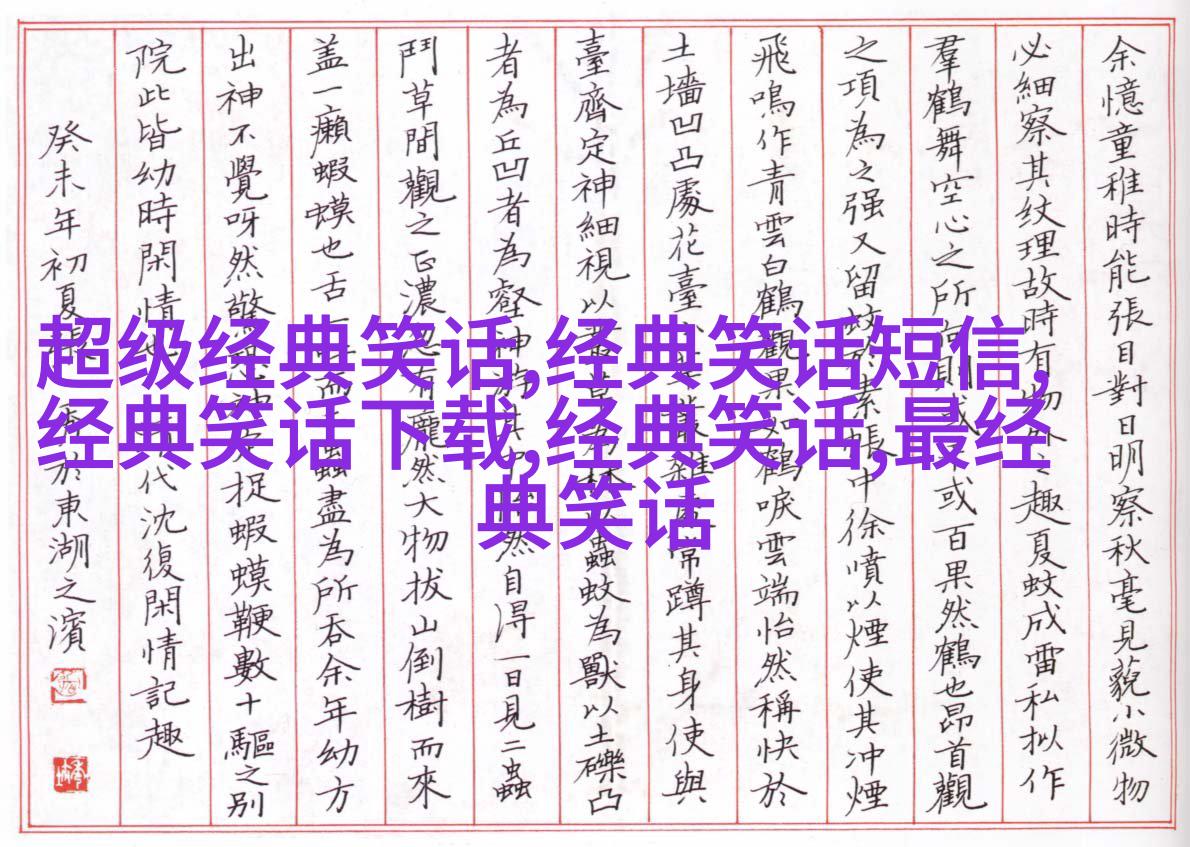 余憶童稚時能張目對日明察秋毫見藐小微物
必細察其纹理故時有物外之趣夏蚊成雷私拟作
羣鶴舞空心之所向則或或百果然鶴也昂首觀
之項為之强又留蚊於素帳中徐噴以煙使其冲煙
飛鳴作青雲白鶴觀果如鶴唳雲端怡然稱快於
土墻凹凸處花臺小草叢雜處常蹲其身使與
臺齊定神細視以叢草為林以蟲蚊為獸以土礫凸
者為丘凹者為壑神游其中怡然自得一日見二蟲
鬥草間觀之正濃忽有龐然大物拔山倒樹而來
盖一癩蝦蟆也舌一吐而二蟲盡為所吞余年幼方
出神不覺呀然驚恐神定捉蝦蟆鞭數十驅之别
院此皆幼時閑情也代沈復閑情記趣
癸未年初夏於東湖之濱
超级经典笑话,经典笑话短信,
经典笑话下载,经典笑话,最经
典笑话